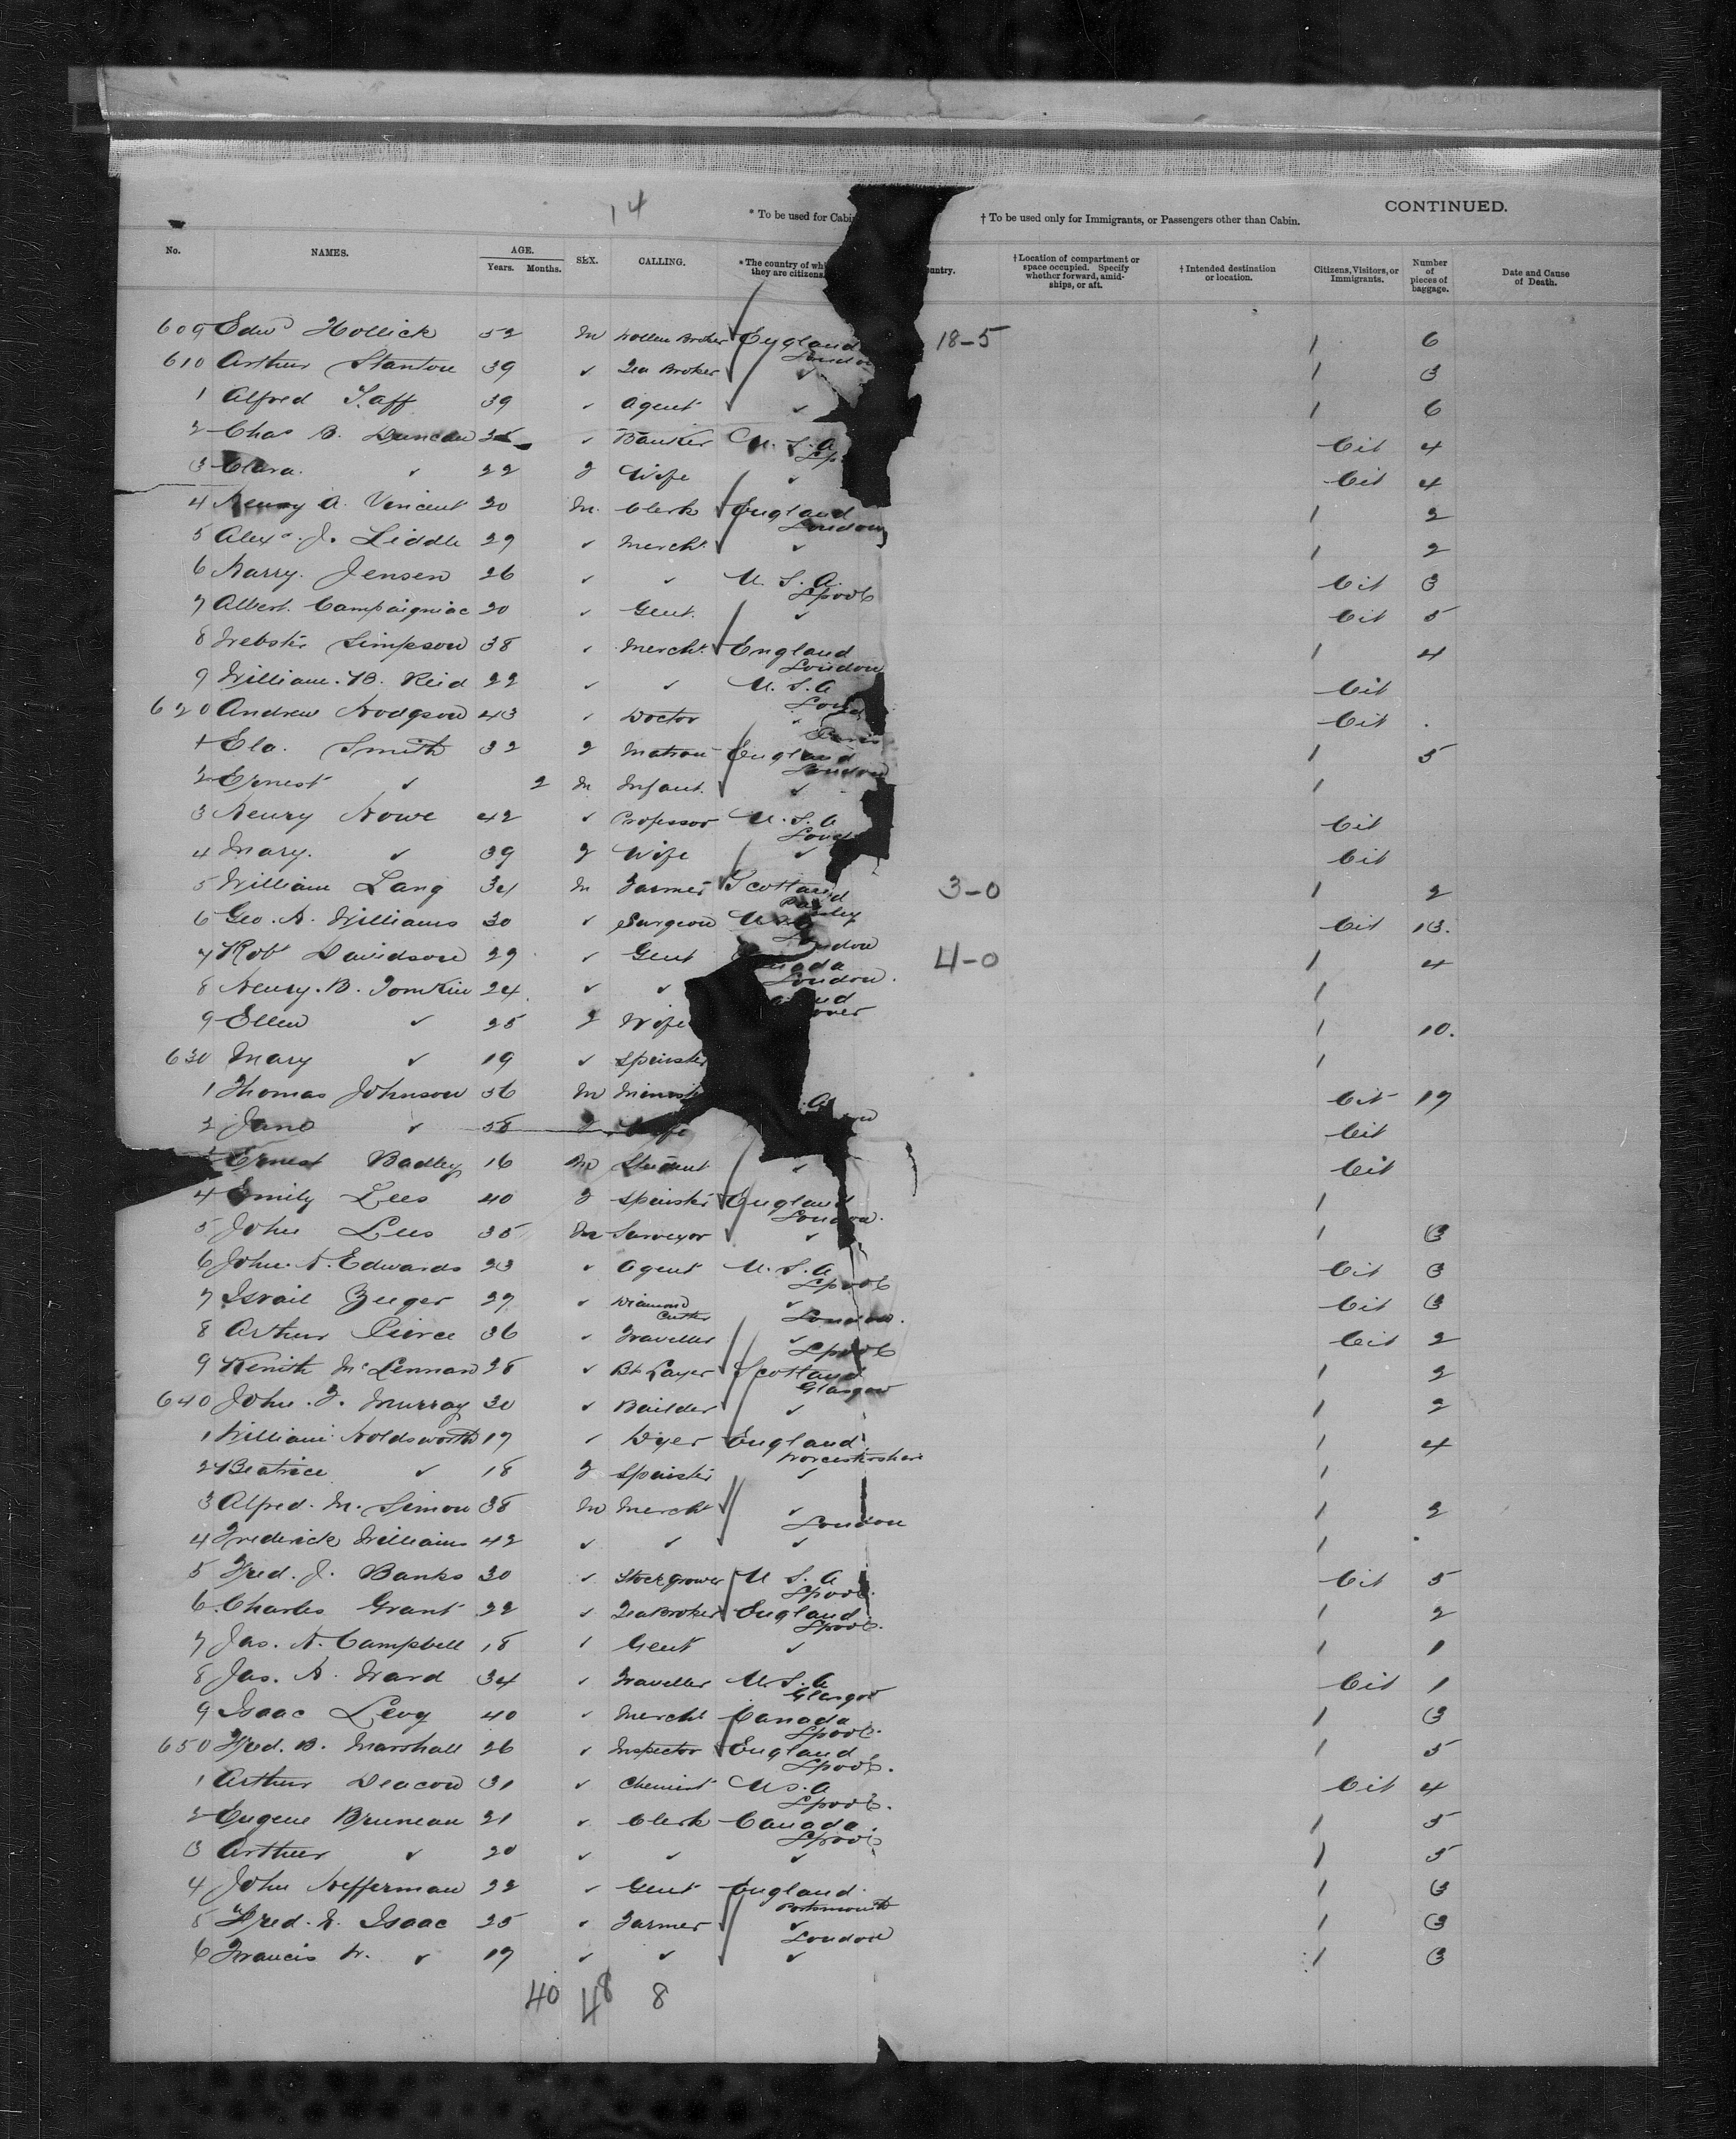 14
* To be used for Cabin
† To be used only for Immigrants, or Passengers other than Cabin.
CONTINUED.
No. NAMES. AGE. Years. Months. SEX. CALLING. * The country of which they are citizens. Country. † Location of compartment or space occupied. Specify whether forward, amidships, or aft. † Intended destination or location. Citizens, Visitors, or Immigrants. Number of pieces of baggage. Date and Cause of Death.
609 Edwd Hollick 52 M Broker England 18-5 1 6
London
610 Arthur Stanton 39 ✓ Tea Broker ✓ 1 3
1 Alfred Taff 39 ✓ Agent ✓ 1 6
2 Chas B. Duncan ✓ Banker U.S.A Cit 4
3 Clara ✓ 22 F Wife ✓ Cit 4
4 Henry A. Vincent 20 M Clerk England 1 2
London
5 Alexr. J. Liddle 29 ✓ Mercht ✓ 1 2
6 Harry Jensen 26 ✓ ✓ U.S.A. Cit 3
Lpool
7 Albert Campaigniac 20 ✓ Gent. ✓ Cit 5
8 Webster Simpson 38 ✓ Mercht England 1 4
London
9 William B. Reid 22 ✓ ✓ U.S.A Cit
620 Andrew Hodgson 43 ✓ Doctor Cit
Paris
1 Ela. Smith 32 F Matron England 1 5
London
2 Ernest ✓ 2 M Infant. ✓ 1
3 Henry Howe 42 ✓ Professor U.S.A Cit
4 Mary. ✓ 39 F Wife ✓ Cit
5 William Lang 34 M Farmer Scotland 3-0 1 2
6 Geo. H. Williams 30 ✓ Surgeon Cit 13.
London
7 Robt Davidson 29 ✓ Gent 4-0 1 4
London
8 Henry B. Tomkin 24 ✓ ✓ 1
9 Ellen ✓ 25 F Wife 1 10.
630 Mary ✓ 19 ✓ Spinster 1
1 Thomas Johnson 56 M Cit 19
2 Jane ✓ 58 F Wife Cit
Ernest Badley 16 M Student ✓ Cit
4 Emily Lees 40 F Spinster England 1
London.
5 John Lees 35 M Surveyor ✓ 1 3
6 John H. Edwards 23 ✓ Agent U.S.A Cit 3
Lpool
7 Israil Zeeger 27 ✓ Diamond Cutter ✓ Cit 3
London.
8 Arthur Pierce 36 ✓ Traveller ✓ Cit 2
Lpool
9 Kenith McLennan 28 ✓ Bk Layer Scotland 1 2
Glasgow
640 John F. Murray 30 ✓ Builder ✓ 1 2
1 William Holdsworth 19 ✓ Dyer England 1 4
Worcestershire
2 Beatrice ✓ 18 F Spinster ✓ 1
3 Alfred M. Simon 38 M Mercht ✓ 1 2
London
4 Frederick Williams 42 ✓ ✓ ✓ 1
5 Fred. J. Banks 30 ✓ Stock grower U S. A Cit 5
Lpool.
6 Charles Grant 22 ✓ Tea Broker England 1 2
Lpool.
7 Jas. H. Campbell 18 ✓ Gent ✓ 1 1
8 Jas. H. Ward 34 ✓ Traveller U.S.A Cit 1
Glasgow
9 Isaac Levy 40 ✓ Mercht Canada 1 3
Lpool.
650 Fred. B. Marshall 26 ✓ Inspector England 1 5
Lpool.
1 Arthur Deacon 31 ✓ Chemist U.S.A Cit 4
Lpool.
2 Eugene Bruneau 21 ✓ Clerk Canada 1 5
Lpool
3 Arthur ✓ 20 ✓ ✓ ✓ 1 5
4 John Hefferman 22 ✓ Gent England 1 3
Portsmouth
5 Fred. W. Isaac 25 ✓ Farmer ✓ 1 3
London
6 Francis W. ✓ 19 ✓ ✓ ✓ 1 3
40 48 8